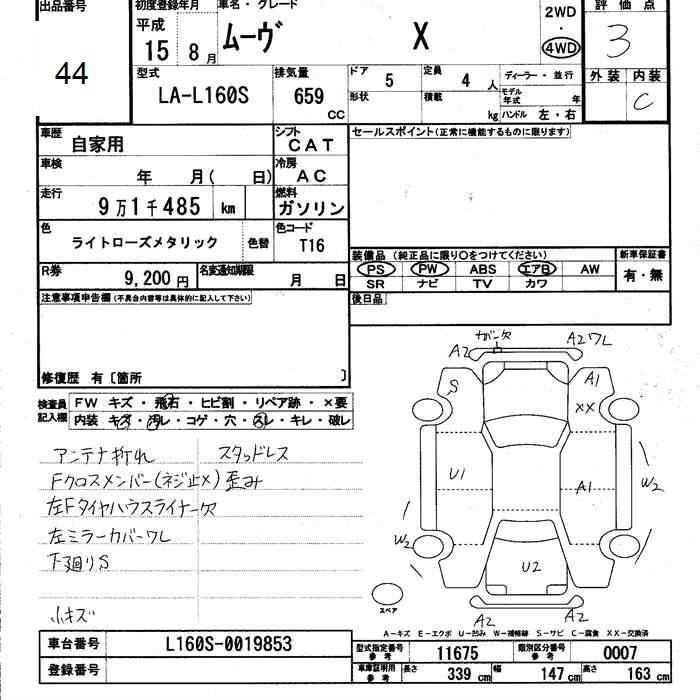 出品番号
44
初度登録年月
平成
15 8 月
車名・グレード
ムーヴ X
2WD
・
4WD
評価点
3
型式
LA-L160S
排気量
659
CC
ドア
5
定員
4 人
形状
積載
kg
ディーラー・並行
モデル年式 年
ハンドル 左・右
外装 内装
C
車歴
自家用
シフト
CAT
車検
年 月( 日)
冷房
AC
走行
9万1千485 km
燃料
ガソリン
色
ライトローズメタリック
色替
色コード
T16
R券
9,200円
名変通知期限
月 日
セールスポイント(正常に機能するものに限ります)
装備品 (純正品に限り〇をつけてください)
新車保証書
PS PW ABS エアB AW
SR ナビ TV カワ
有・無
後日品
注意事項申告欄 (不具合内容等は具体的に記入して下さい)
修復歴 有〔箇所 〕
検査員記入欄
FW キズ・飛石・ヒビ割・リペア跡・×要
内装 キズ・汚レ・コゲ・穴・スレ・キレ・破レ
アンテナ折れ
スタッドレス
Fクロスメンバー(ネジ止×)歪み
左Fタイヤハウスライナー欠
左ミラーカバーワレ
下廻りS
小キズ
カバー欠
A2
A2ワレ
S
A1
XX
U1
A1
W2
W2
U2
A2
A2
スペア
A-キズ E-エクボ U-凹み W-補修跡 S-サビ C-腐食 XX-交換済
車台番号
L160S-0019853
登録番号
型式指定番号
参考
11675
類別区分番号
参考
0007
車庫証明用
参考
長さ
339 cm
幅
147 cm
高さ
163 cm